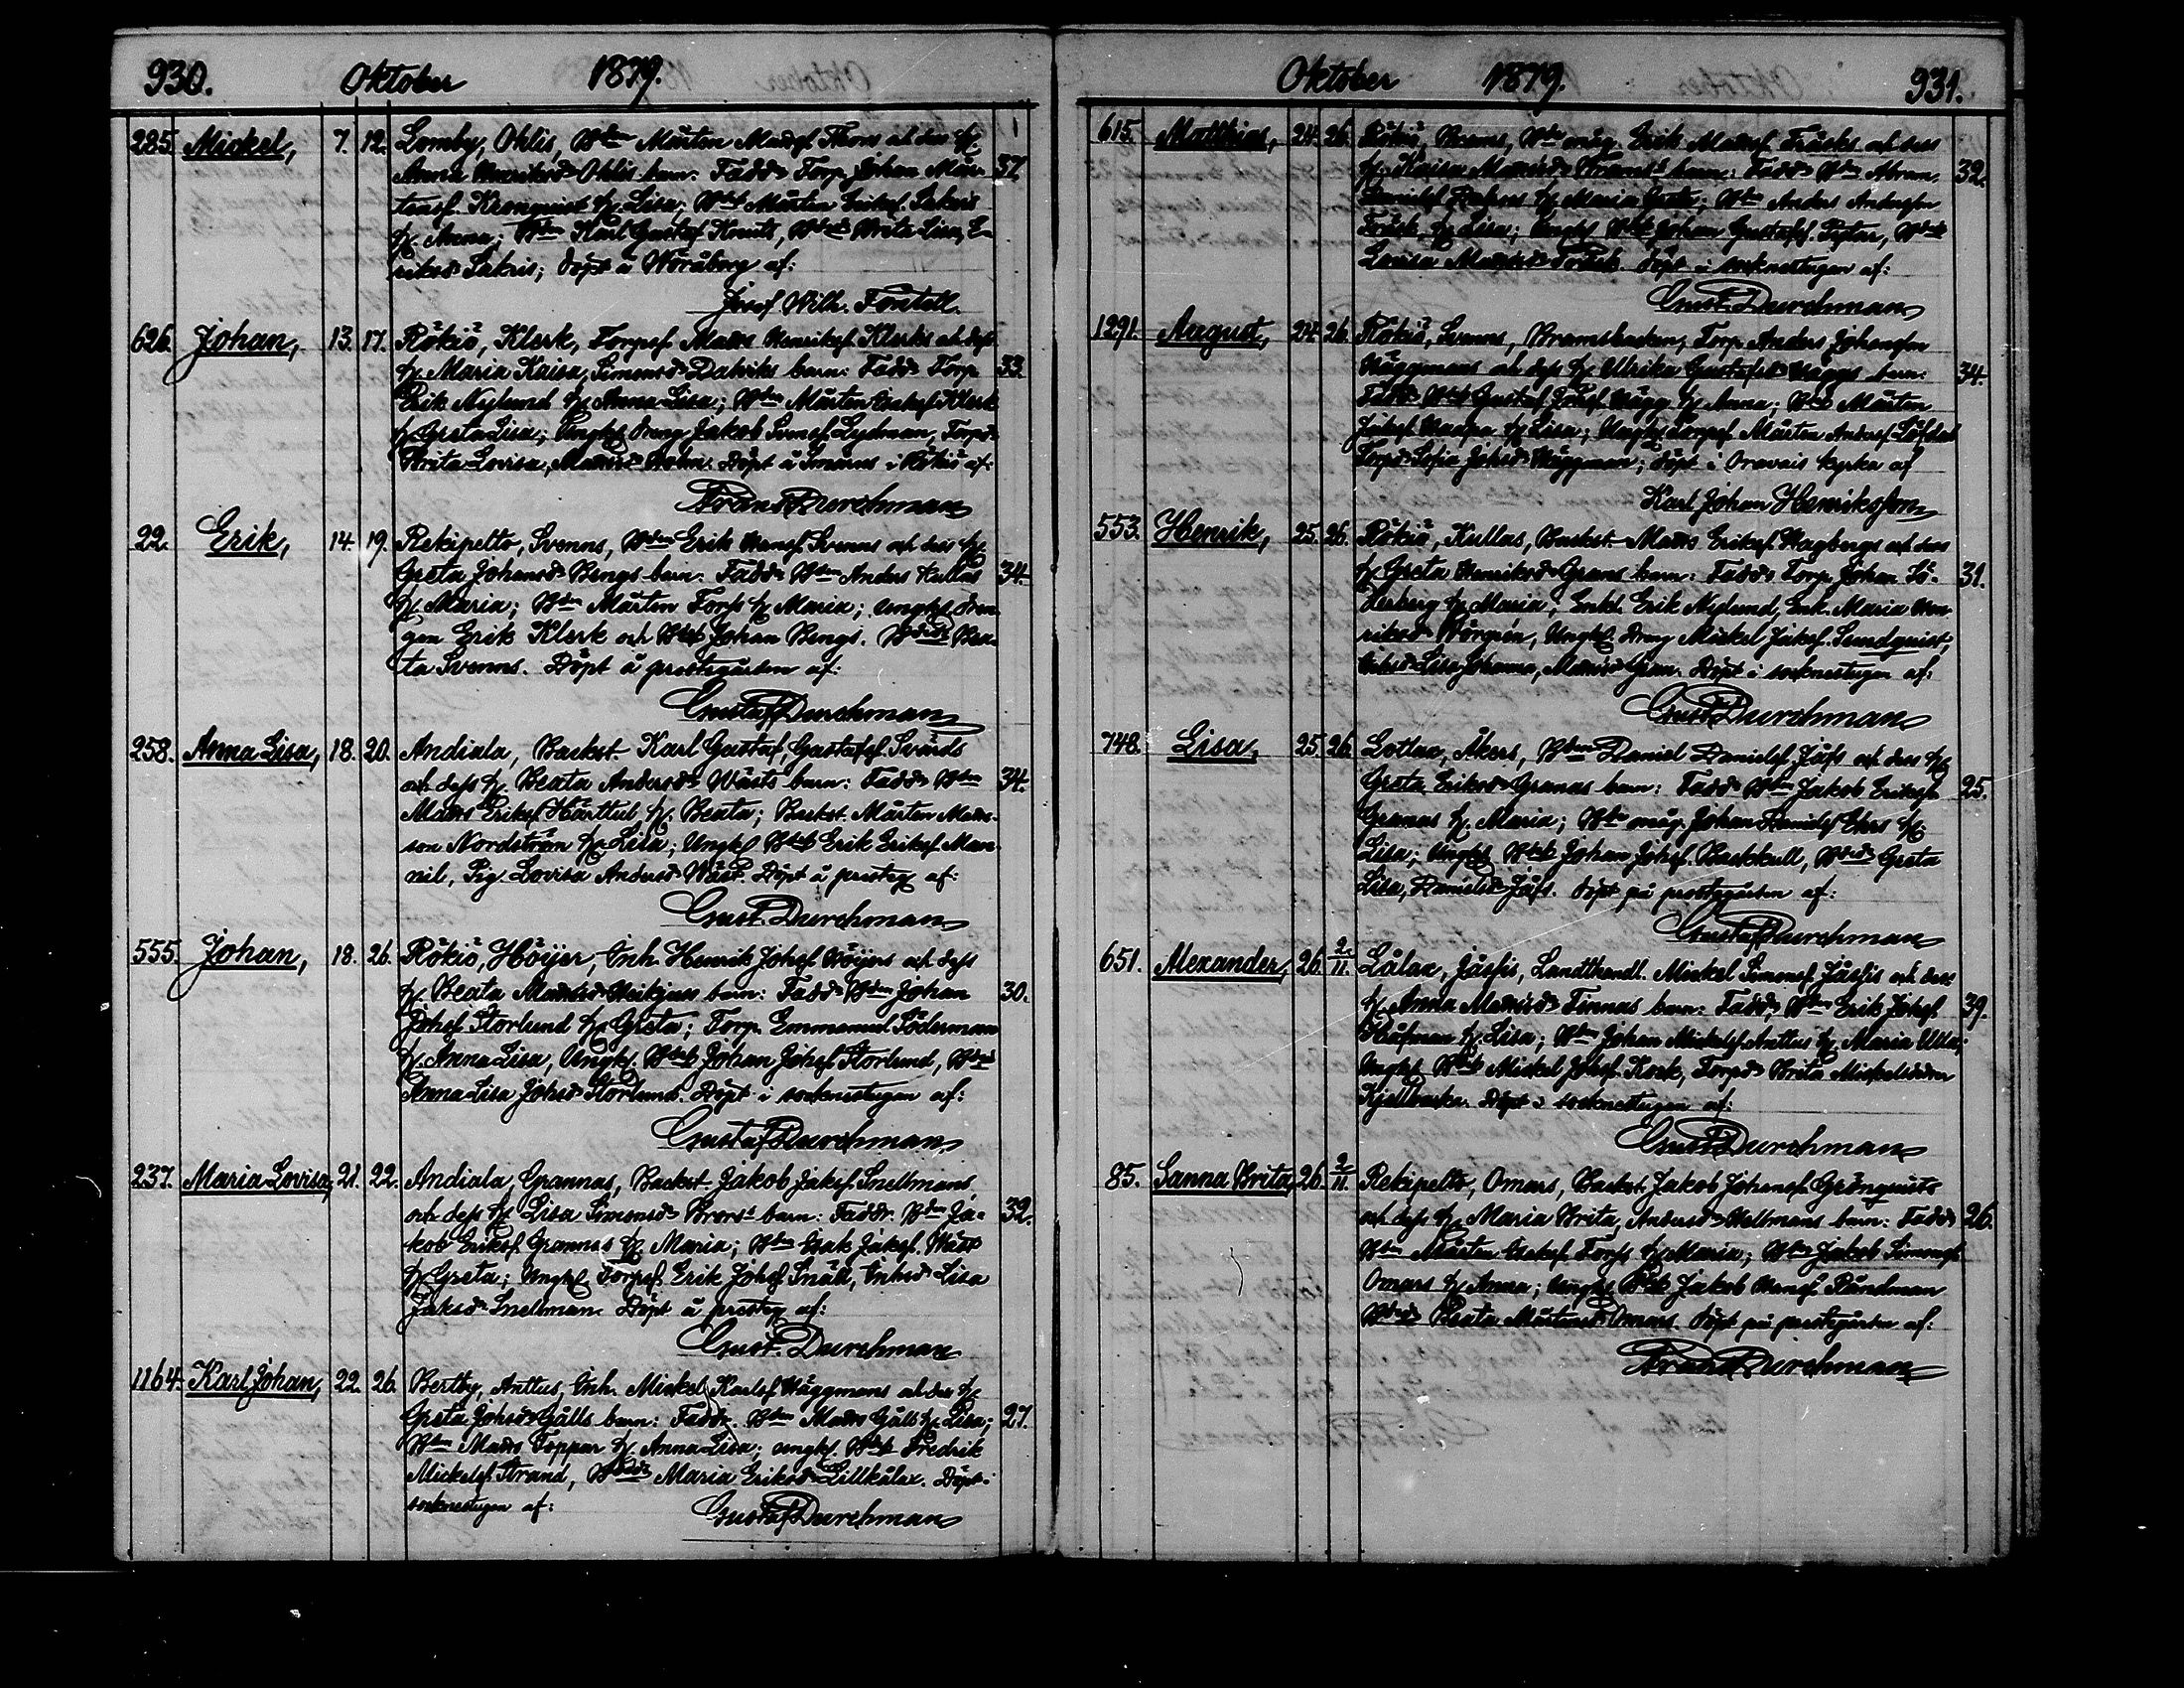 930. Oktober 1879.
285. Mickel, 7. 12. Lomby, Ohlis, Bden Mårten Madsf. Thors och dess h.
Anna Henriksdr Ohlis barn. Faddr Torp. Johan Mår- 37.
tensf. Kronqvist h. Lisa; Bdes Mårten Eriksf. Lakers
h. Anna; Bden Karl Gustaf Knuts, Bdedr Brita Lisa, E-
riksdr Lakris; Döpt å Woråborg af:
Josef Wilh. Forstell.
626. Johan, 13. 17. Rökiö, Klerk, Torpsf. Matts Henriksf. Klerks och dess
h. Maria Kaisa, Simonsdr Dalviks barn: Faddr Torp. 33.
Erik Nylund h. Anna Lisa; Bden Mårten Isaksf. Klerk
h. Greta Lisa; Ungkf. Dreng Jakob Svensf. Lydman, Torpdr
Brita Lovisa, Madsdr Holm. Döpt å Smärns i Rökiö af:
Frans Durchman
22. Erik, 14. 19. Rekipelto, Svenns, Bden Erik Hansf. Svenns och dess h.
Greta Johansdr Bengs barn: Faddr Bden Anders Kullas 34.
h. Maria; Bden Mårten Forss h. Maria; Ungkf. dren-
gen Erik Klerk och Bdes Johan Bengs. Bdedr Bea-
ta Svenns. Döpt å prostgården af:
Gustaf Durchman
258. Anna Lisa, 18. 20. Andiala, Backst. Karl Gustaf, Gustafsf. Svärds
och dess h. Beata Andersdr Wästs barn: Faddr Bden 34.
Matts Eriksf. Härttul h. Beata; Backst. Mårten Mads-
son Nordström h. Lisa; Ungkf. Bdes Erik Eriksf. Man-
nil, Pig. Lovisa Andersdr Wäst. Döpt å prostg. af:
Gust. Durchman
555. Johan, 18. 26. Rökiö, Höijer, Inh. Henrik Johsf. Höijers och dess
h. Beata Madsdr Heikjus barn: Faddr Bden Johan 30.
Johsf. Storlund h. Greta; Torp. Emmanuel Söderman
h. Anna Lisa, Ungkf. Bdes Johan Johsf. Storlund, Bdedr
Anna Lisa Johsdr Storlund. Döpt i sockenstugan af:
Gustaf Durchman
237. Maria Lovisa, 21. 22. Andiala, Grannas, Backst. Jakob Jaksf. Snellmans
och dess h. Lisa Simonsdr Brors barn: Faddr. Bden Ja- 32.
kob Eriksf. Grannas h. Maria; Bden Isak Jaksf. Wäst
h. Greta; Ungkf. Torpsf. Erik Johsf. Snäll, Inhdr Lisa
Jaksdr Snellman. Döpt å prostg. af:
Gust. Durchman
1164. Karl Johan, 22. 26. Bertby, Anttus, Inh. Mickel Karlsf. Häggmans och dess h.
Greta Johsdr Gålls barn: Faddr. Bden Matts Gålls h. Lisa; 27.
Bden Matts Toppar h. Anna Lisa; Ungkf. Bdes Fredrik
Mickelsf. Strand, Bdedr Maria Eriksdr Lillkålax. Döpt i
sockenstugan af: Gustaf Durchman
Oktober 1879. 931.
615. Matthias, 24. 26. Rökiö, Brams, Bde måg. Erik Madsf. Fräsks och dess
h. Kaisa Madsdr Brams barn: Faddr Bden Abram 32.
Danielsf. h. Maria Greta; Bden Anders Andersson
Fräsk h. Lisa; Ungkf. Bdes Johan Gustafsf. Bdedr
Lovisa Madsdr Fräsk. Döpt i sockenstugan af:
Gust. Durchman
1291. August, 24. 26. Rökiö, Svenns, Bramsbacken, Torp. Anders Johansson
Häggmans och dess h. Ulrika Gustafsdr Häggs barn: 34.
Faddr Bdes Gustaf Johsf. Hägg h. Anna; Bden Mårten
Jaksf. h. Lisa; Ungkf. Torpsf. Mårten Andersf. Löfdal
Torpdr Sofia Johsdr Häggman; Döpt i Oravais kyrka af
Karl Johan Henriksson
553. Henrik, 25. 26. Rökiö, Kullas, Backst. Matts Eriksf. Hagbergs och dess
h. Greta Henriksdr Grans barn: Faddr Torp. Johan Sö- 31.
derberg h. Maria; Enkl. Erik Nylund, Enk. Maria Hen-
riksdr Ungkf. Dreng Mickel Jaksf. Sundqvist,
Inhdr Lisa Johanna, Madsdr Gran. Döpt i sockenstugan af:
Gust. Durchman
748. Lisa, 25. 26. Lotlax, Åkers, Bden Daniel Danielsf. Jåfs och dess h.
Greta Eriksdr Granas barn: Faddr Bden Jakob Eriksson 25.
Granas h. Maria; Bde måg. Johan Danielsf. Ehrs h.
Lisa; Ungkf. Bdes Johan Johsf. Backkull, Bdedr Greta
Lisa, Danielsdr Jåfs. Döpt på prostgården af:
Gustaf Durchman
651. Alexander, 26. 2/11. Lålax, Jåssis, Landthandl. Mickel Simonsf. Jåssis och dess
h. Anna Madsdr Finnas barn: Faddr Bden Erik Johsf. 39.
h. Lisa; Bden Johan Mickelsf. Anttus h. Maria Ulla;
Ungkf. Bdes Mickel Johsf. Kock, Torpdr Brita Mickelsdotter
Kjellbacka. Döpt i sockenstugan af:
Gust. Durchman
85. Sanna Brita, 26. 2/11. Rekipelto, Omars, Backst. Jakob Johansf. Grönqvists
och dess h. Maria Brita, Andersdr Hellmans barn: Faddr 26.
Bden Mårten Isaksf. Forss h. Maria; Bden Jakob Simonsf.
Omars h. Anna; Ungkf. Bdes Jakob Hansf. Rundman
Bdedr Beata Mårtensdr Omars. Döpt på prostgården af:
Frans Durchman